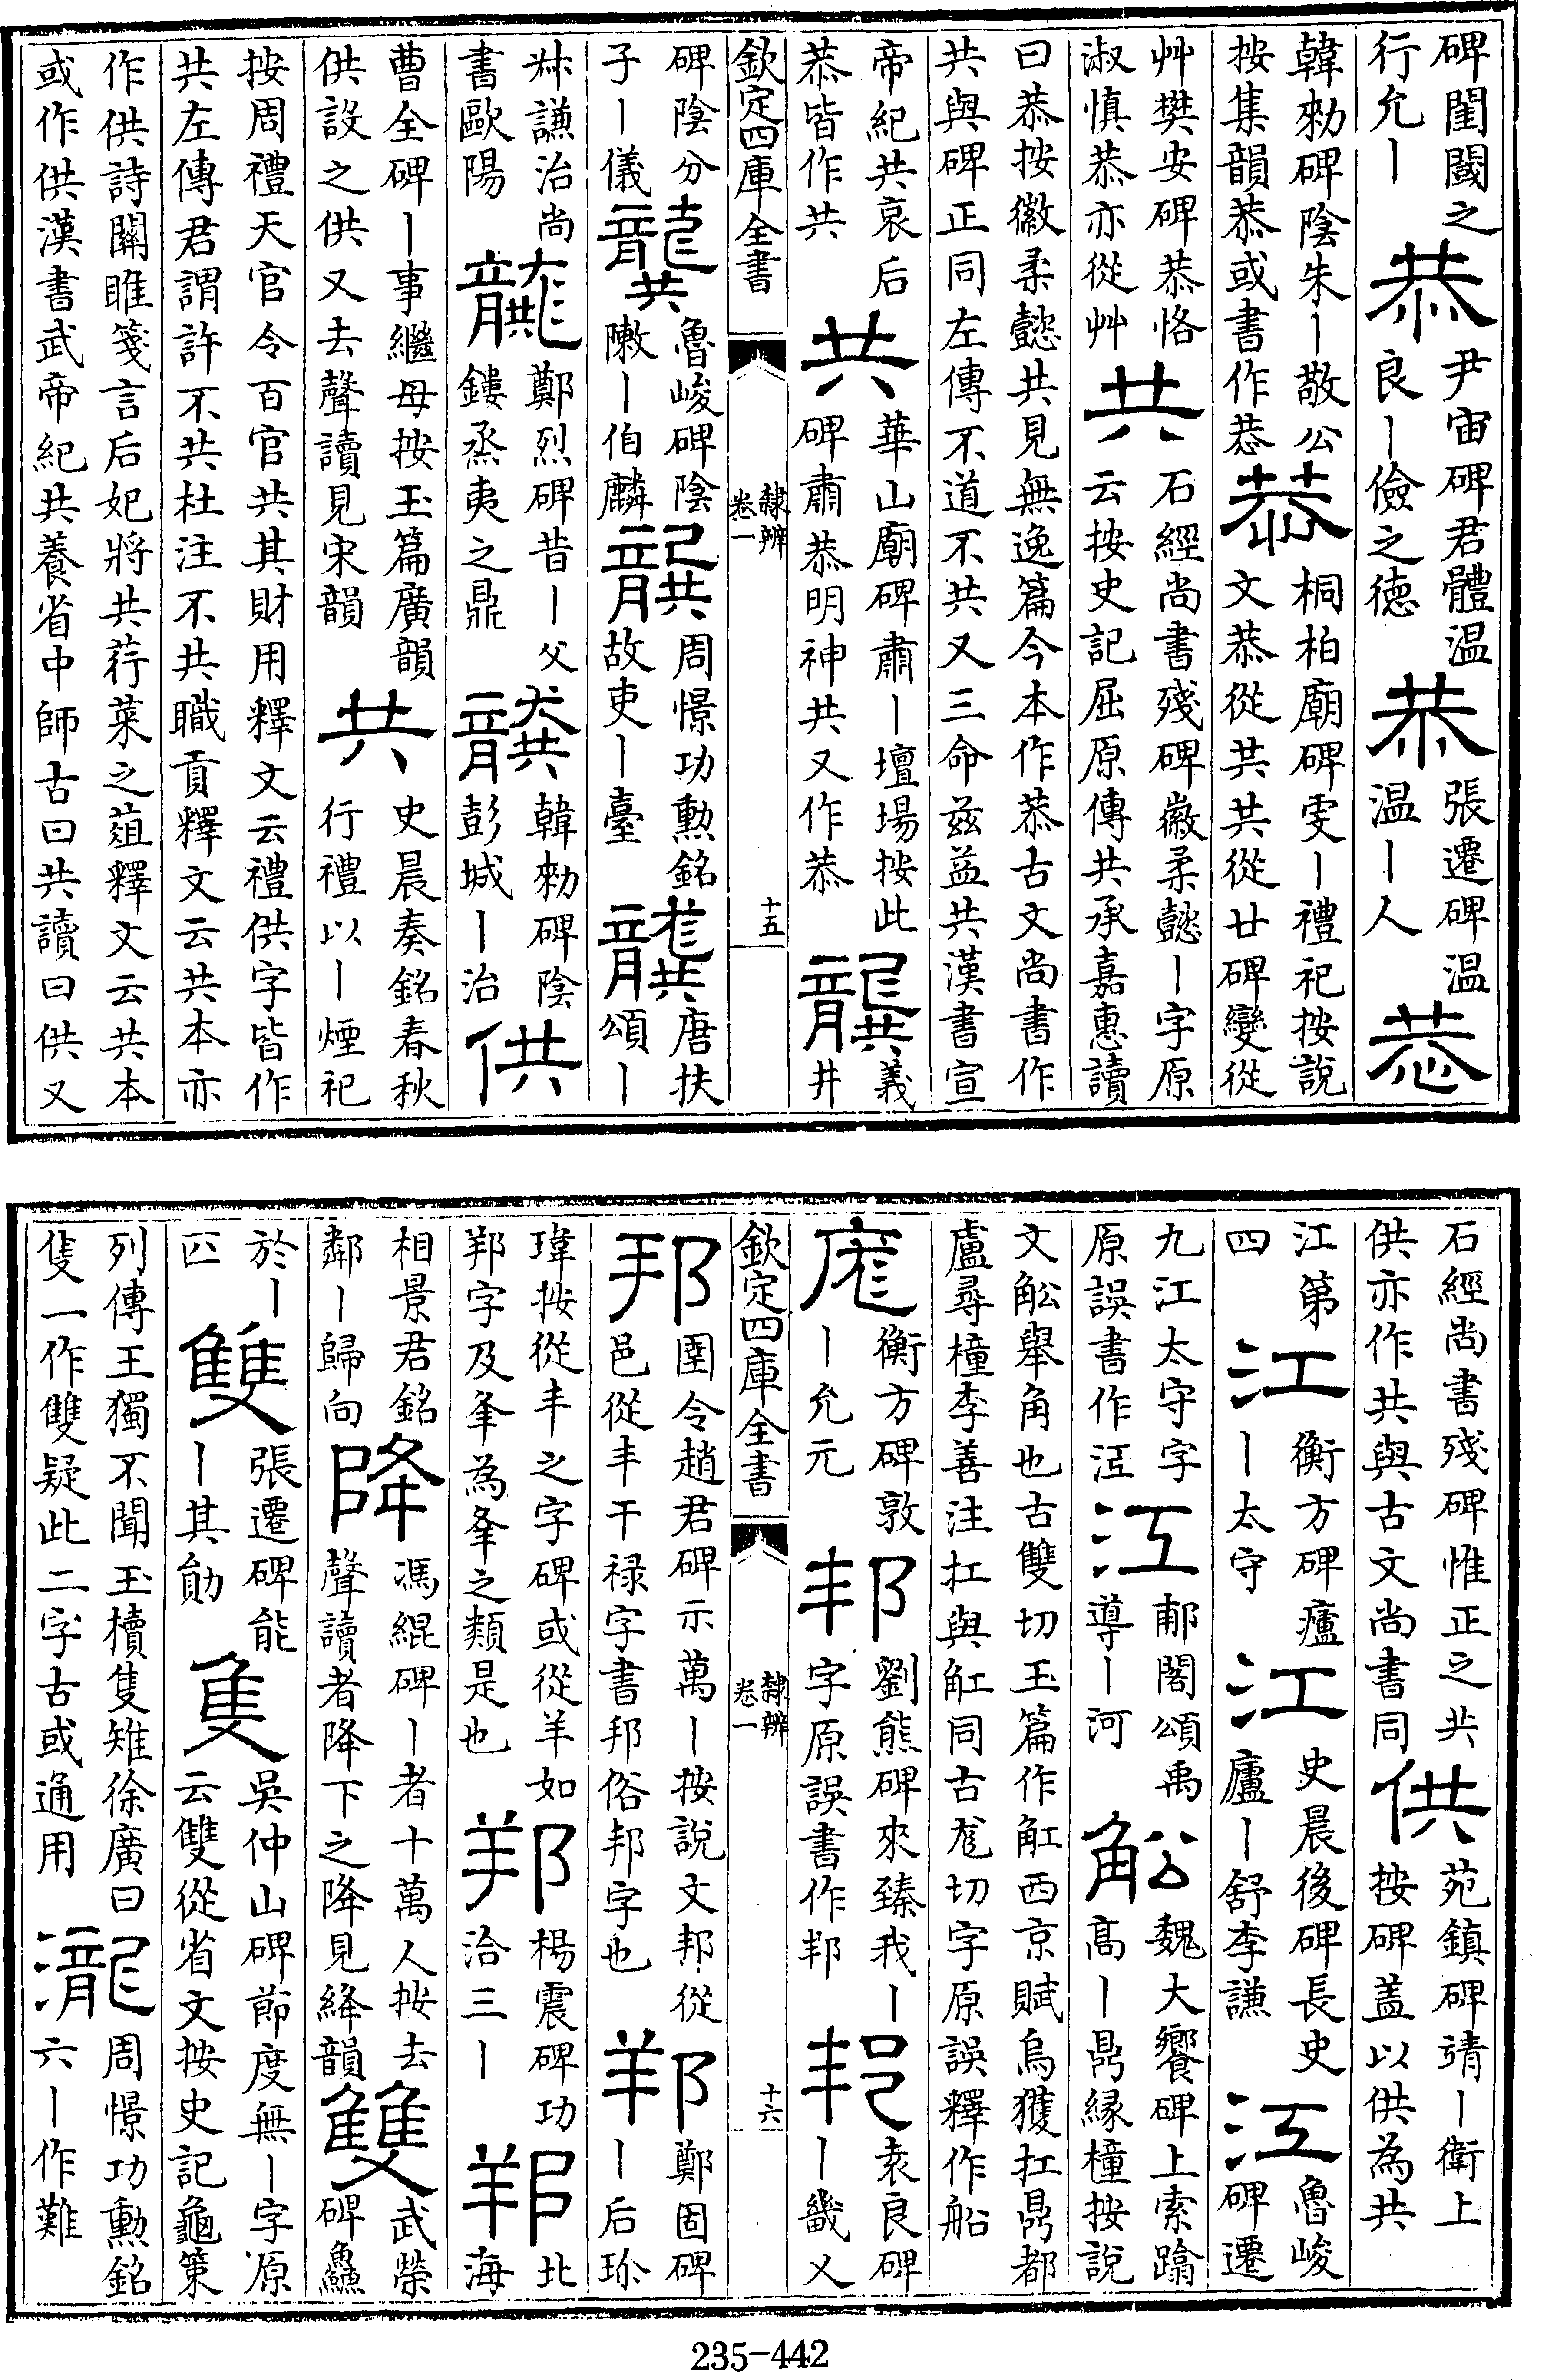 碑閨閾之
行允丨
恭
尹宙碑君體温
良丨儉之德
恭
張遷碑温
温丨人
恭
韓勑碑陰朱丨敬公
按集韻恭或書作㳟
恭
桐柏廟碑雯丨禮祀按說
文恭從共共從廿碑變從
艸樊安碑恭恪
淑慎恭亦從艸
共
石經尚書殘碑徽柔懿丨字原
云按史記屈原傳共承嘉惠讀
曰恭按徽柔懿共見無逸篇今本作恭古文尚書作
共與碑正同左傳不道不共又三命兹益共漢書宣
帝紀共哀后
恭皆作共
共
華山廟碑肅丨壇場按此
碑肅恭明神共又作恭
龔
義
井
欽定四庫全書
隸辨
卷一
十五
碑陰分
子丨儀
龔
魯峻碑陰
嗽丨伯麟
龔
周憬功勲銘
故吏丨臺
龔
唐扶
頌丨
烌謙治尚
書歐陽
龔
鄭烈碑昔丨父
鏤烝夷之鼎
龔
韓勑碑陰
彭城丨治
供
曹全碑丨事繼母按玉篇廣韻
供設之供又去聲讀見宋韻
共
史晨奏銘春秋
行禮以丨煙祀
按周禮天官令百官共其財用釋文云禮供字皆作
共左傳君謂許不共杜注不共職貢釋文云共本亦
作供詩關雎箋言后妃將共荇菜之葅釋文云共本
或作供漢書武帝紀共養省中師古曰共讀曰供又
石經尚書殘碑惟正之共
供亦作共與古文尚書同
供
苑鎮碑靖丨衛上
按碑蓋以供為共
江第
四
江
衡方碑廬
丨太守
江
史晨後碑長史
廬丨舒李謙
江
魯峻
碑遷
九江太守字
原誤書作㳕
江
郙閣頌禹
導丨河
舩
魏大饗碑上索蹹
高丨鼎緣橦按說
文舩舉角也古雙切玉篇作䚗西京賦烏獲扛鼎都
盧尋橦李善注扛與䚗同古尨切字原誤釋作船
庬
衡方碑敦
丨允元
邦
劉熊碑來臻我丨
字原誤書作邦
邦
袁良碑
丨畿乂
欽定四庫全書
隸辨
卷一
十六
邦
圉令趙君碑示萬丨按說文邦從
邑從丰干禄字書邦俗邦字也
邦
鄭固碑
丨后珍
瑋按從丰之字碑或從羊如
邦字及夆為夆之類是也
邦
楊震碑功
洽三丨
邦
北
海
相景君銘
鄰丨歸向
降
馮緄碑丨者十萬人按去
聲讀者降下之降見絳韻
雙
武榮
碑鱻
於丨
匹
雙
張遷碑能
丨其勛
隻
吳仲山碑節度無丨字原
云雙從省文按史記龜策
列傳王獨不聞玉櫝隻雉徐廣曰
隻一作雙疑此二字古或通用
瀧
周憬功勲銘
六丨作難
235-442